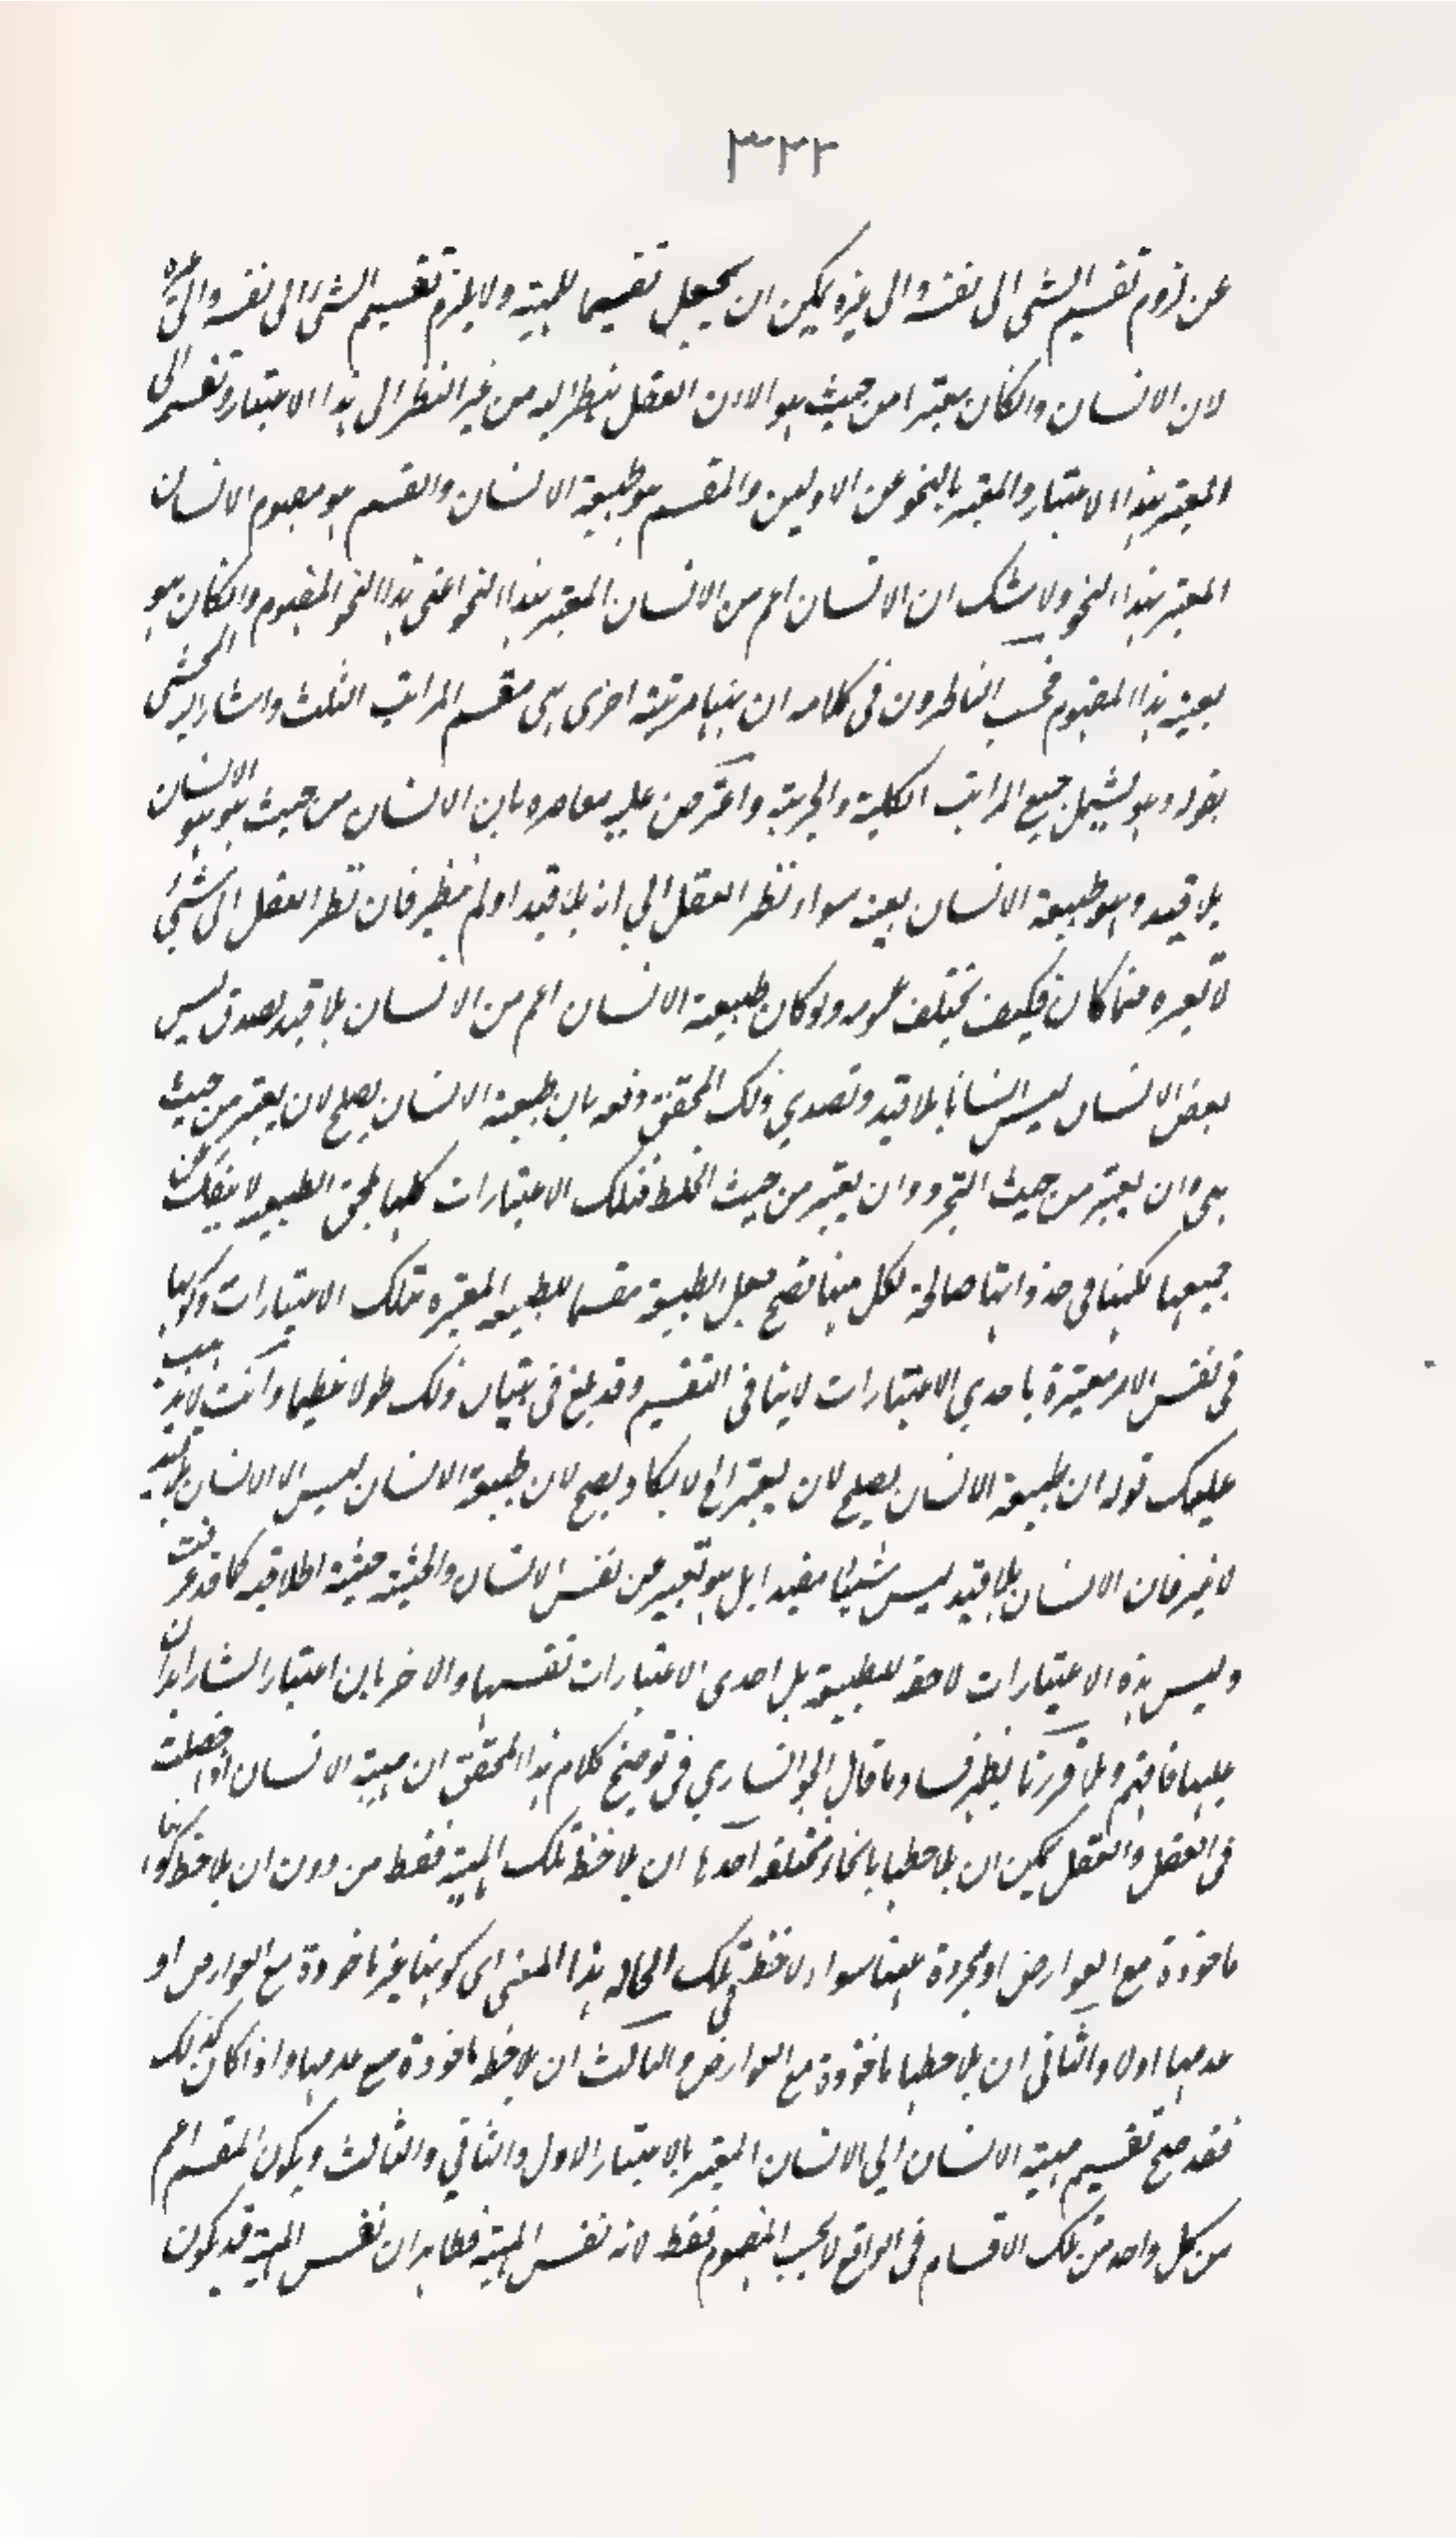 ٣٢٢
عن لزوم تقسيم الشى الى نفسه والى غيره يمكن ان يجعل تقسيما للمهية ولا يلزم تقسيم الشئ الى نفسه والى غيره
لان الانسان وانكان معتبرا من حيث هو الا ان العقل ينظر اليه من غير النظر الى هذا الاعتبار وتقسيمه الى
المعتبر بهذا الاعتبار والمعتبر بالنحو من الاولين والمقسم هو طبيعة الانسان والقسم هو مفهوم الانسان
المعتبر بهذا النحو ولا شك ان الانسان اعم من الانسان المعتبر بهذا النحو اعنى هذا النحو المفهوم وانكان هو
بعينه هذا المفهوم فحسب الناظرون فى كلامه ان ههنا مرتبة اخرى هى مقسم المراتب الثلث واشار اليه المحشى
بقوله وهو يشمل جميع المراتب الكلية والجزئية واعترض عليه معاصره بان الانسان من حيث هو هو الانسان
بلا قيد وهو طبيعة الانسان بعينه سواء نظر العقل الى انه بلا قيد او لم ينظر فان نظر العقل الى شئ
لا تغيره عما كان فكيف يختلف عمومه ولو كان طبيعة الانسان اعم من الانسان بلا قيد لصدق ليس
بعض الانسان ليس انسانا بلا قيد وتصدى ذلك المحقق دفعه بان طبيعة الانسان يصلح لان يعتبر من حيث
هى وان يعتبر من حيث التجرد وان يعتبر من حيث الخلط فتلك الاعتبارات كلها يلحق الطبيعة لا ينفك عن
جميعها لكنها فى حد ذاتها صالحة لكل منها فصح جعل الطبيعة مقسما للطبيعة المعتبرة بتلك الاعتبارات وكونها
فى نفس الامر معتبرة باحدى الاعتبارات لا ينافى التقسيم وقد بلغ فى بيان ذلك طولا عظيما وانت لا يذهب
عليك قوله ان طبيعة الانسان يصلح لان يعتبر الخ لا يكاد يصح لان طبيعة الانسان ليس الا الانسان بلا قيد
لا غير فان الانسان بلا قيد ليس شيئا مقيدا بل هو تعبير عن نفس الانسان والحيثية حيثية اطلاقية كما قد عرفت
وليس هذه الاعتبارات لاحقة للطبيعة بل احدى الاعتبارات نفسها والاخريان اعتباران
عليها فافهم وبما قررنا يظهر فساد ما قال الخوانسارى فى توضيح كلام هذا المحقق ان مهية الانسان اذا حصلت
فى العقل والعقل يمكن ان يلاحظها بانحاء مختلفة احدها ان يلاحظ تلك المهية فقط من دون ان يلاحظ كونها
ماخوذة مع العوارض او مجردة عنها سواء لاحظ فى تلك الحالة هذا المعنى اى كونها غير ماخوذة مع العوارض او
عدمها اولا والثانى ان يلاحظها ماخوذة مع العوارض والثالث ان يلاحظ ماخوذة مع عدمها واذا كان كذلك
فقد صح تقسيم مهية الانسان الى الانسان المعتبر بالاعتبار الاول والثانى والثالث ويكون المقسم اعم
من كل واحد من تلك الاقسام فى الواقع لا بحسب المفهوم فقط لانه نفس المهية فظاهر ان نفس المهية قد يكون